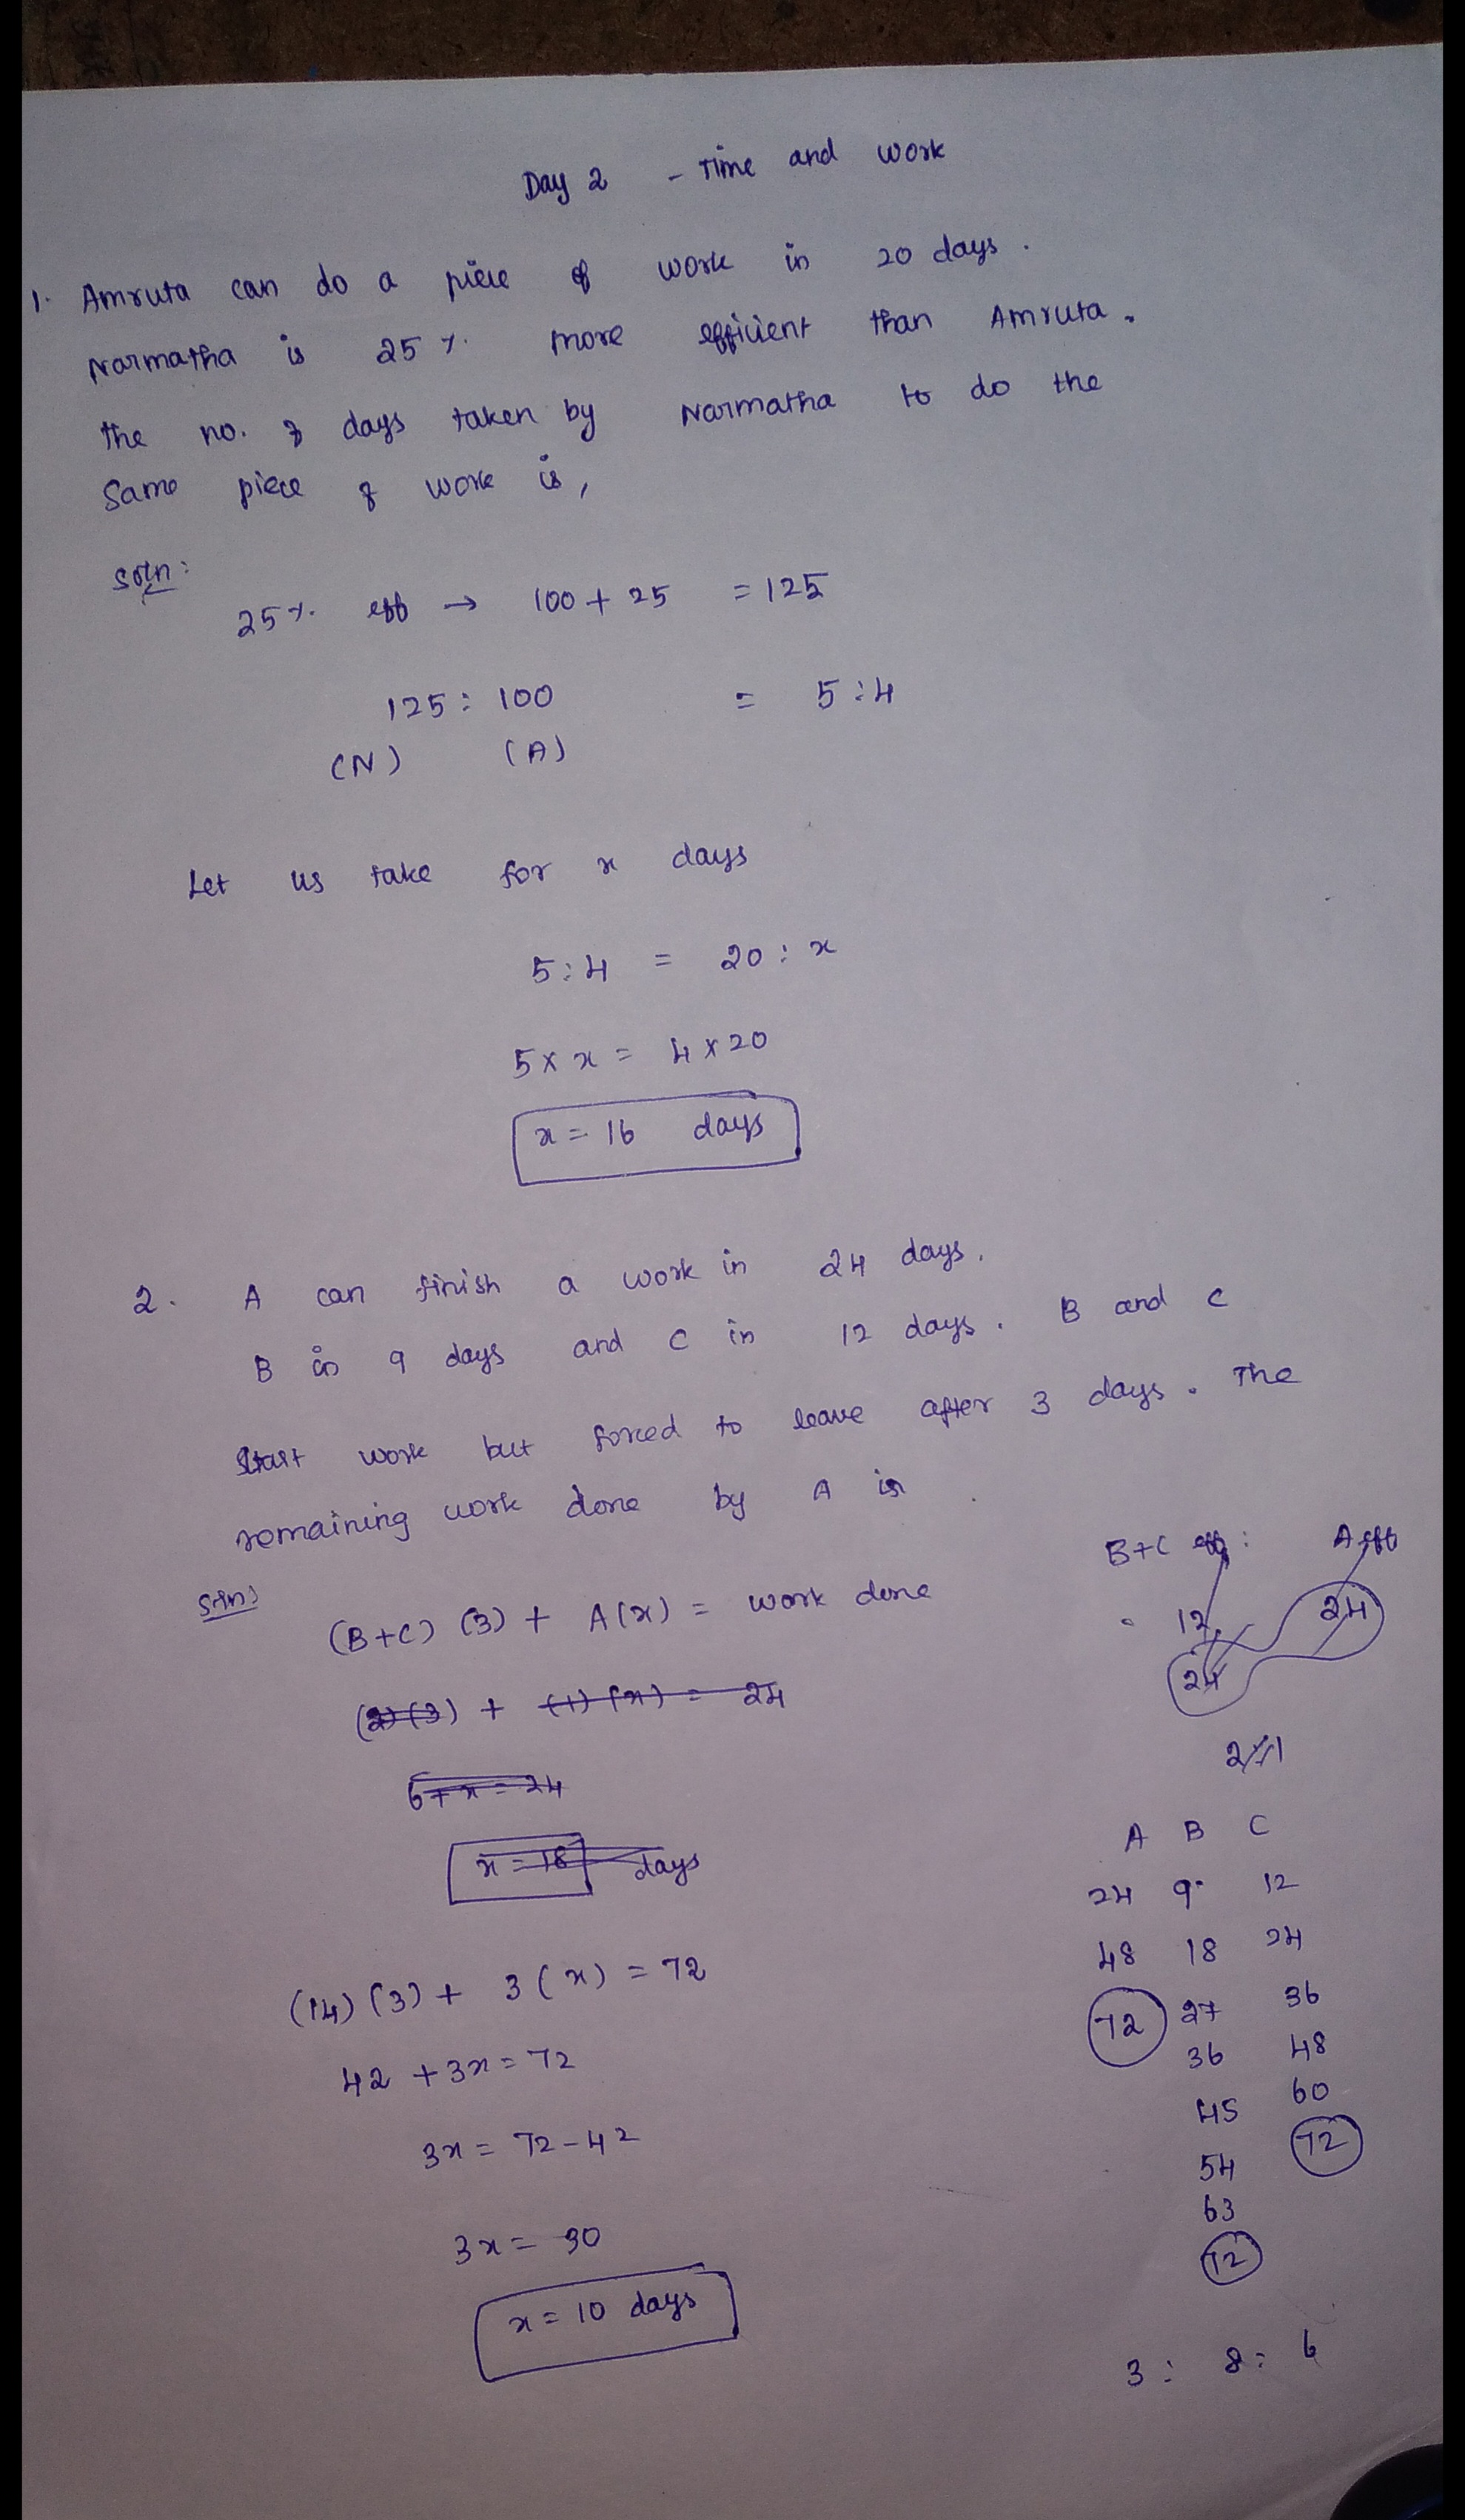 Day 2 - Time and work
1. Amruta can do a piece of work in 20 days.
Narmatha is 25 % more efficient than Amruta.
The no. of days taken by Narmatha to do the
Same piece of work is,
Soln:
25 % eff → 100 + 25 = 125
125 : 100 = 5 : 4
(N) (A)
Let us take for x days
5 : 4 = 20 : x
5 × x = 4 × 20
x = 16 days
2. A can finish a work in 24 days.
B in 9 days and C in 12 days. B and C
Start work but forced to leave after 3 days. The
remaining work done by A is
Soln:
(B+C) (3) + A(x) = work done
(2)(3) + (1)(x) = 24
6+x = 24
x = 18 days
(14) (3) + 3 (x) = 72
42 + 3x = 72
3x = 72 - 42
3x = 30
x = 10 days
B+C eff : A eff
= 12 24
24
2 : 1
A B C
24 9 12
48 18 24
72 27 36
36 48
45 60
54 72
63
72
3 : 8 : 6